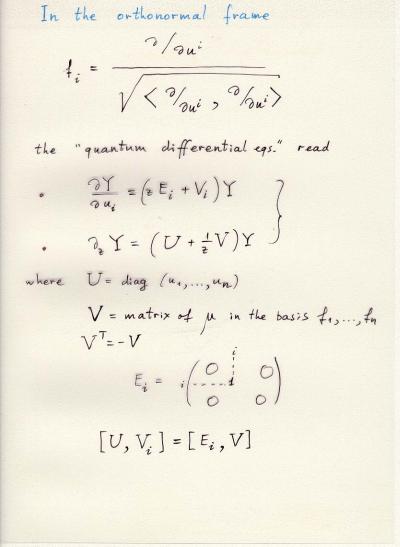 In the orthonormal frame
f_i = (∂/∂u^i) / √<∂/∂u^i , ∂/∂u^i>
the "quantum differential eqs." read
• ∂Y/∂u_i = (z E_i + V_i) Y
• ∂_z Y = (U + 1/z V) Y
where U = diag (u_1, ..., u_n)
V = matrix of μ in the basis f_1, ..., f_n
V^T = -V
E_i = i ( 0 i 0 1 0 0 )
[U, V_i] = [E_i, V]